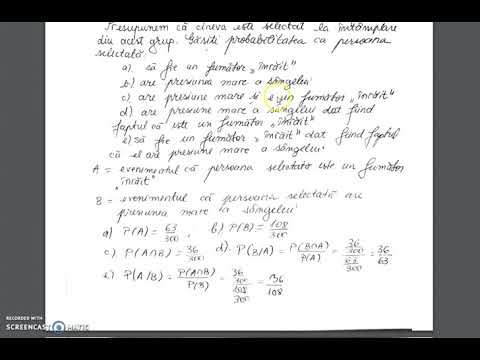 Presupunem că cineva este selectat la întâmplare
din acest grup. Găsiți probabilitatea ca persoana
selectată:
a). să fie un fumător „înrăit"
b) are presiunea mare a sângelui
c) are presiune mare și e un fumător „înrăit"
d) are presiune mare a sângelui dat fiind
faptul că este un fumător „înrăit"
e) să fie un fumător „înrăit" dat fiind faptul
că el are presiune mare a sângelui.
A = evenimentul că persoana selectată este un fumător
„înrăit"
B = evenimentul că persoana selectată are
presiunea mare a sângelui
a) P(A) = 63/300 , b) P(B) = 108/300
c) P(A∩B) = 36/300 d). P(B/A) = P(B∩A)/P(A) = 36/300 / 63/300 = 36/63
e) P(A/B) = P(A∩B)/P(B) = 36/300 / 108/300 = 36/108
RECORDED WITH
SCREENCAST MATIC